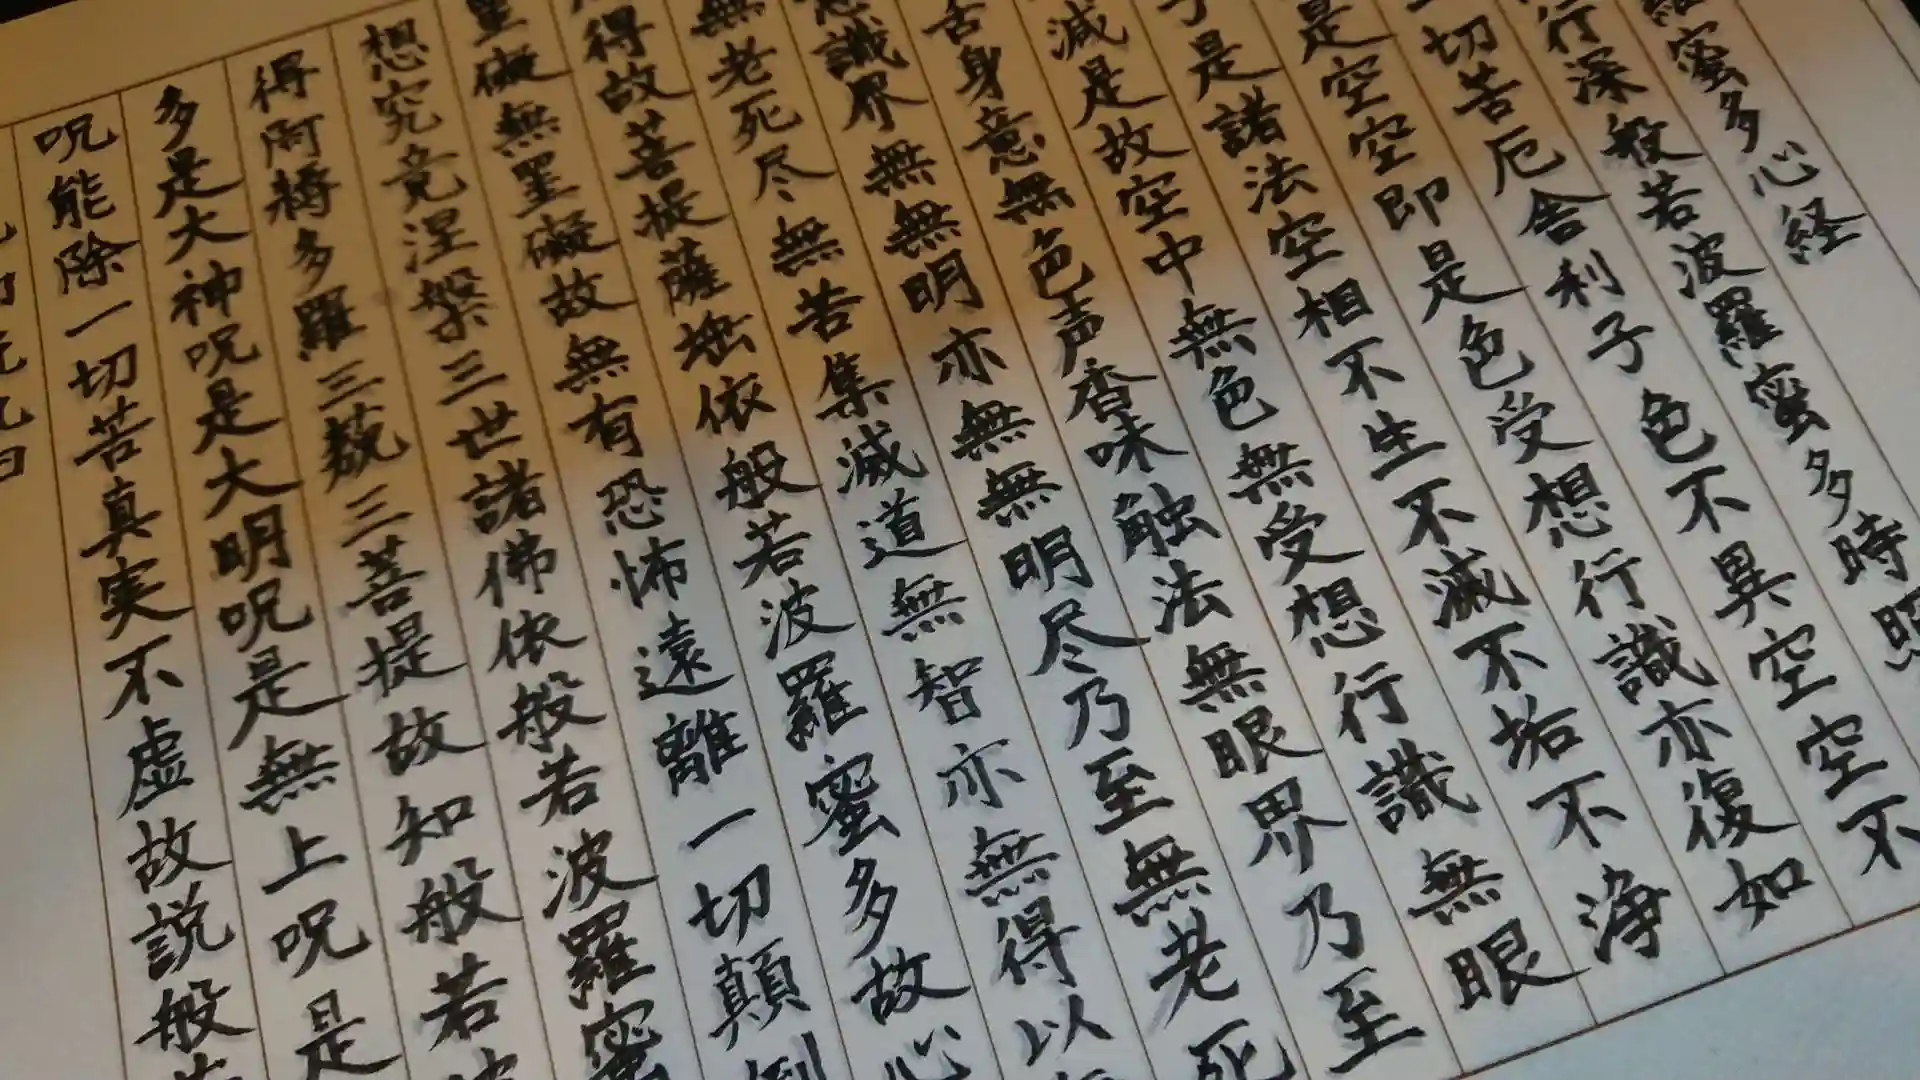 羅蜜多心経
行深般若波羅蜜多時照
一切苦厄舎利子色不異空空不
是空空即是色受想行識亦復如
子是諸法空相不生不滅不垢不浄
減是故空中無色無受想行識無眼
舌身意無色声香味触法無眼界乃至
意識界無無明亦無無明尽乃至無老死
無老死尽無苦集滅道無智亦無得以
得故菩提薩埵依般若波羅蜜多故心
罣礙無罣礙故無有恐怖遠離一切顛倒
想究竟涅槃三世諸佛依般若波羅蜜
得阿耨多羅三藐三菩提故知般若波
多是大神呪是大明呪是無上呪是
呪能除一切苦真実不虚故説般若
呪曰